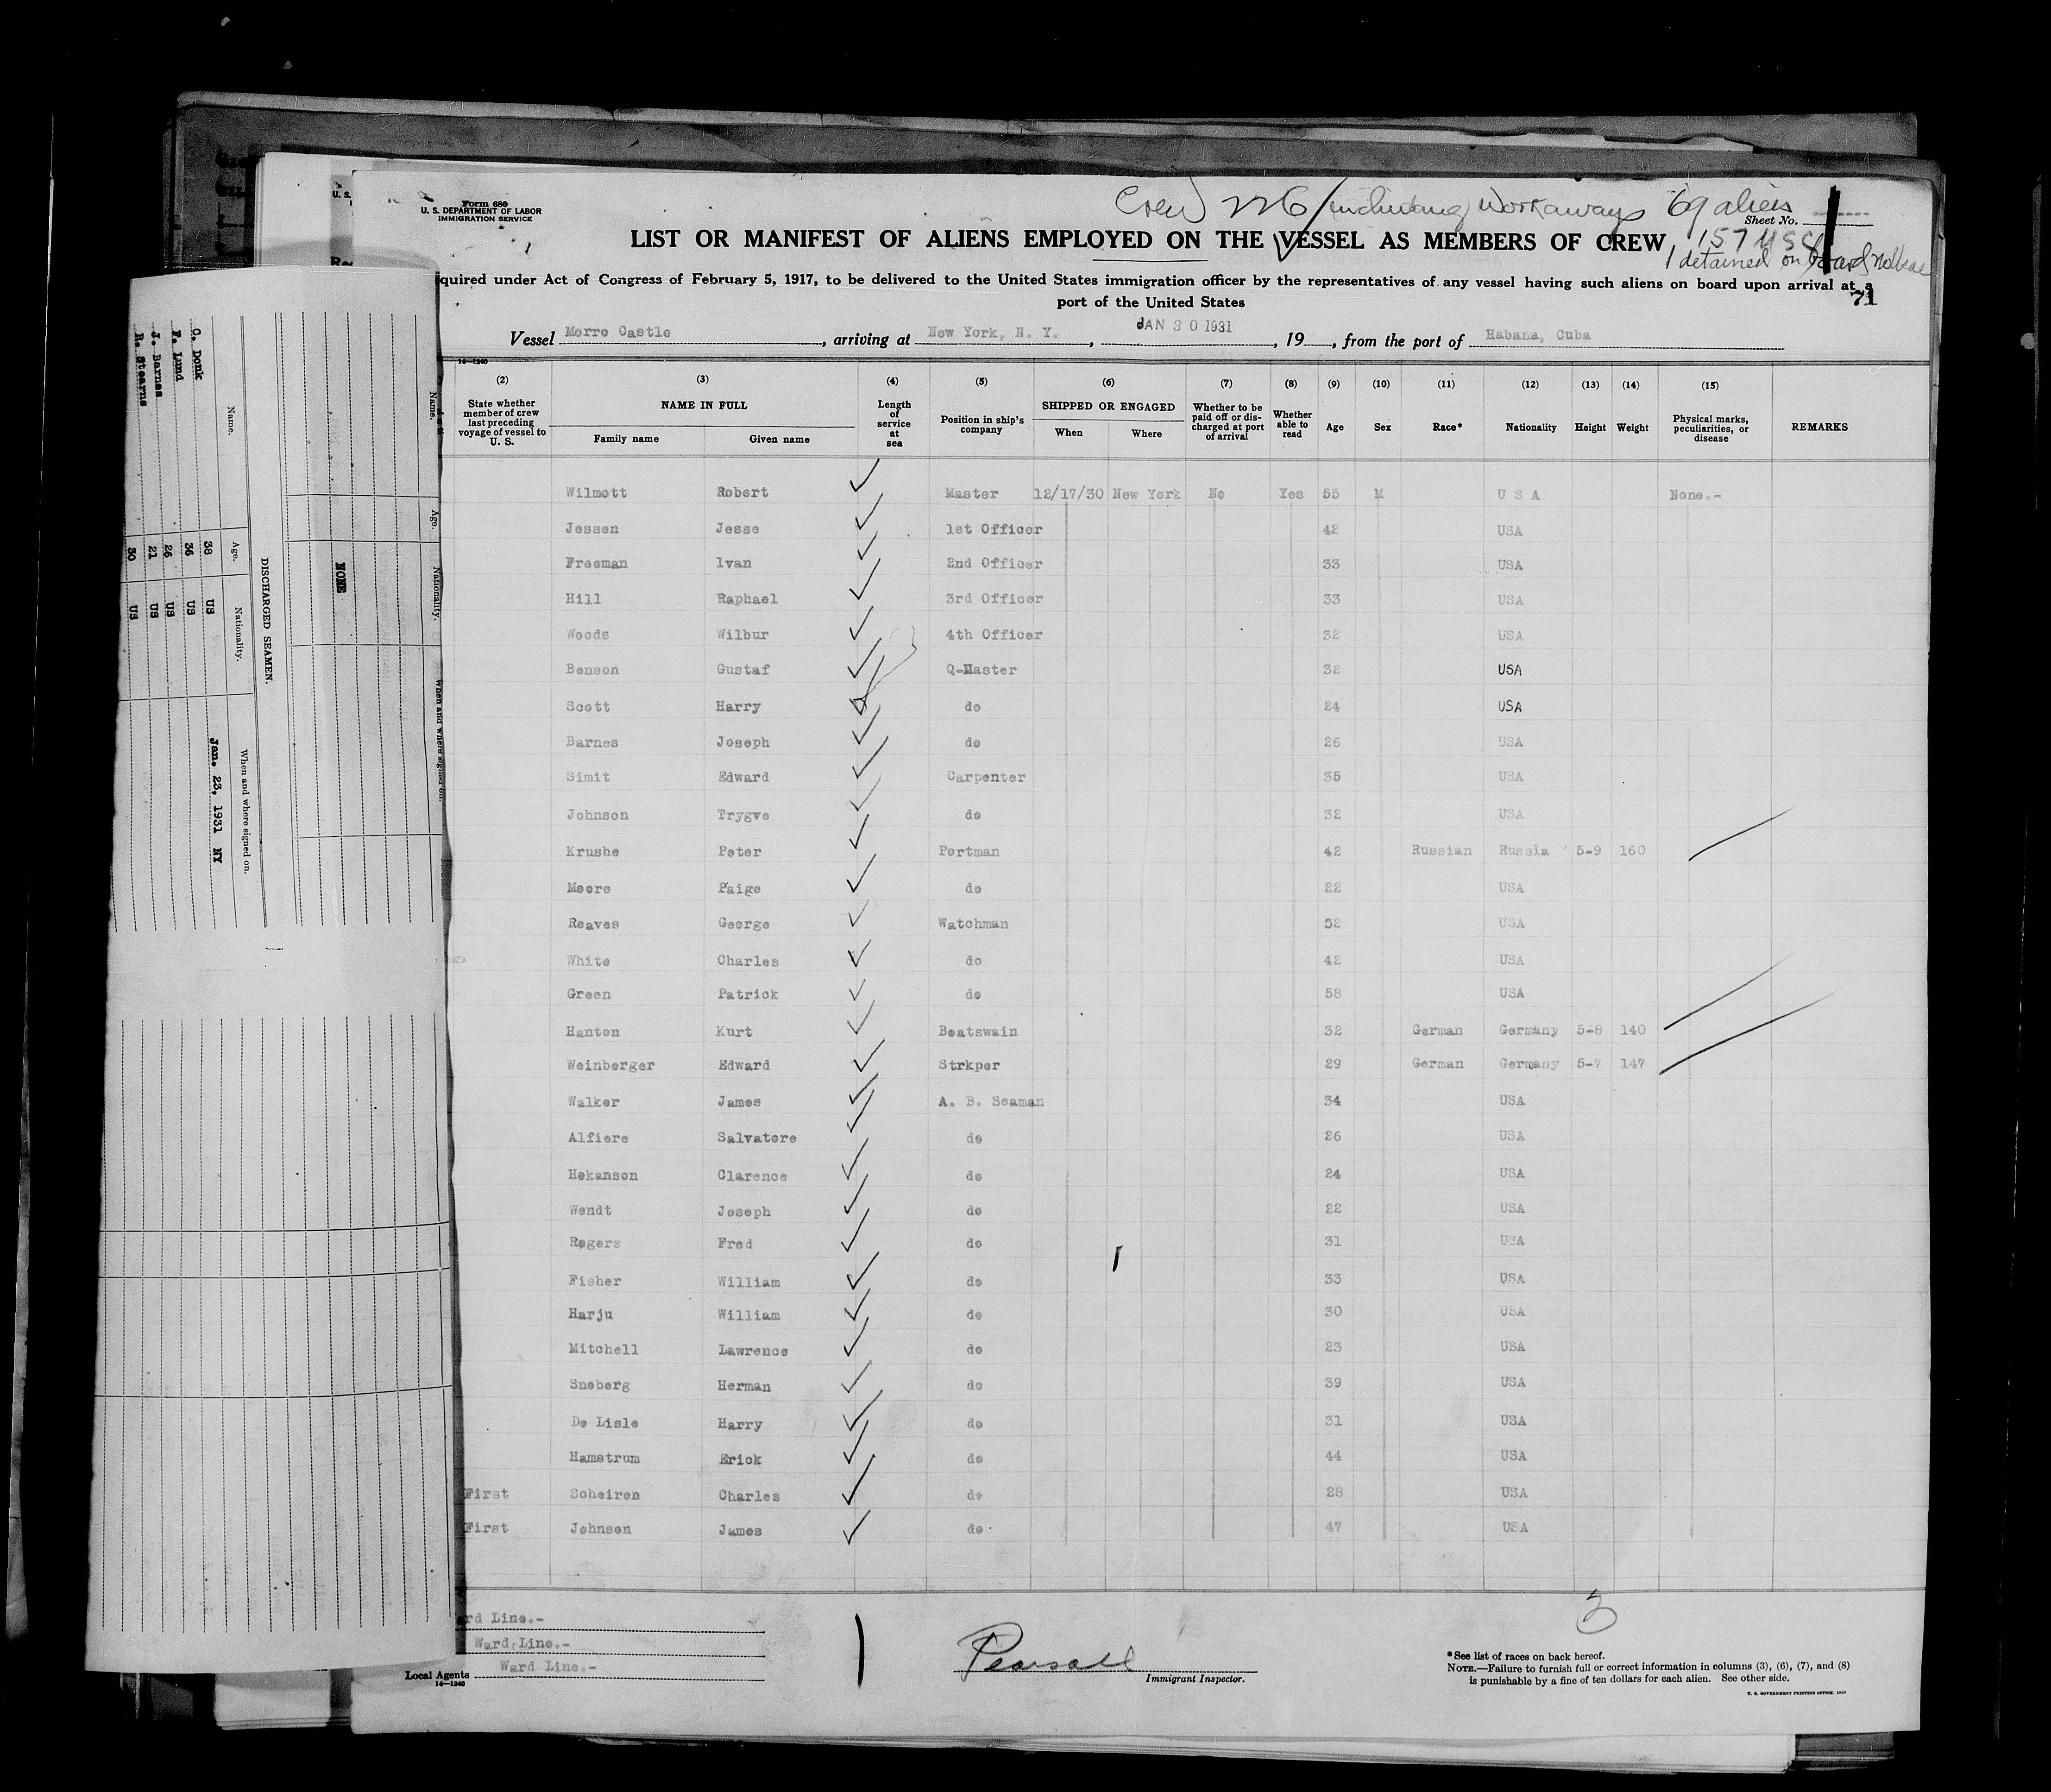 Form 680
U. S. DEPARTMENT OF LABOR
IMMIGRATION SERVICE
Crew 226 including Workaways 69 aliens
Sheet No.
157 USC
1 detained on board
LIST OR MANIFEST OF ALIENS EMPLOYED ON THE VESSEL AS MEMBERS OF CREW
quired under Act of Congress of February 5, 1917, to be delivered to the United States immigration officer by the representatives of any vessel having such aliens on board upon arrival at a
port of the United States
71
Vessel Morro Castle, arriving at New York, N. Y., JAN 30 1931, 19, from the port of Habana, Cuba
14-1240
(2) (3) (4) (5) (6) (7) (8) (9) (10) (11) (12) (13) (14) (15)
State whether member of crew last preceding voyage of vessel to U. S. NAME IN FULL Family name Given name Length of service at sea Position in ship's company SHIPPED OR ENGAGED When Where Whether to be paid off or discharged at port of arrival Whether able to read Age Sex Race* Nationality Height Weight Physical marks, peculiarities, or disease REMARKS
Wilmott Robert Master 12/17/30 New York No Yes 55 M U S A None.-
Jessen Jesse 1st Officer 42 USA
Freeman Ivan 2nd Officer 33 USA
Hill Raphael 3rd Officer 33 USA
Woods Wilbur 4th Officer 32 USA
Benson Gustaf Q-Master 32 USA
Scott Harry do 24 USA
Barnes Joseph do 26 USA
Simit Edward Carpenter 35 USA
Johnson Trygve do 32 USA
Krushe Peter Portman 42 Russian Russia 5-9 160
Moore Paige do 22 USA
Reaves George Watchman 52 USA
White Charles do 42 USA
Green Patrick do 58 USA
Hanton Kurt Boatswain 32 German Germany 5-8 140
Weinberger Edward Strkper 29 German Germany 5-7 147
Walker James A. B. Seaman 34 USA
Alfiero Salvatore do 26 USA
Hokanson Clarence do 24 USA
Wendt Joseph do 22 USA
Rogers Fred do 31 USA
Fisher William do 33 USA
Harju William do 30 USA
Mitchell Lawrence do 23 USA
Snoberg Herman do 39 USA
De Lisle Harry do 31 USA
Hamstrum Erick do 44 USA
First Scheiren Charles do 28 USA
First Johnson James do 47 USA
3
rd Line.-
Ward Line.-
Local Agents Ward Line.-
14-1240
Pearsall
Immigrant Inspector.
*See list of races on back hereof.
NOTE.—Failure to furnish full or correct information in columns (3), (6), (7), and (8)
is punishable by a fine of ten dollars for each alien. See other side.
U. S. GOVERNMENT PRINTING OFFICE
Name. Age. Nationality. When and where signed on.
NONE
DISCHARGED SEAMEN.
Name. Age. Nationality. When and where signed on.
C. Donk 38 US Jan. 23, 1931 NY
F. Lund 36 US
J. Barnes 26 US
R. Stearns 21 US
30 US